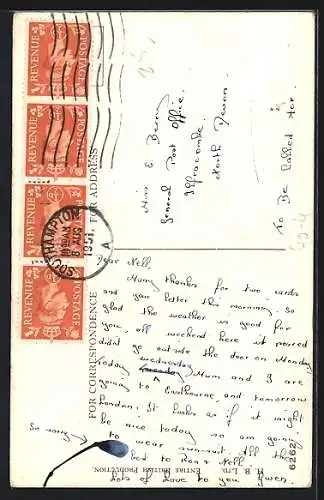 POSTAGE REVENUE
POSTAGE REVENUE
POSTAGE REVENUE
POSTAGE REVENUE
SOUTHAMPTON
8 AUG
1951
A
FOR CORRESPONDENCE
FOR ADDRESS
Miss E Berry
General Post Office
Ilfracombe
North Devon
To Be Called For.
Dear Nell,
Many thanks for two cards
and your letter this morning. So
glad the weather is good for
you, all weekend here it poured
didn't go outside the door on Monday
Today wednesday, Mum and I are
going to Eastbourne, and tomorrow
London. It looks as if it might
be nice today so am going
to wear sunsuit. All the
to Ron & Nell.
Lots of love to you Gwen.
H. B. LTD.
ENTIRE BRITISH PRODUCTION
6262